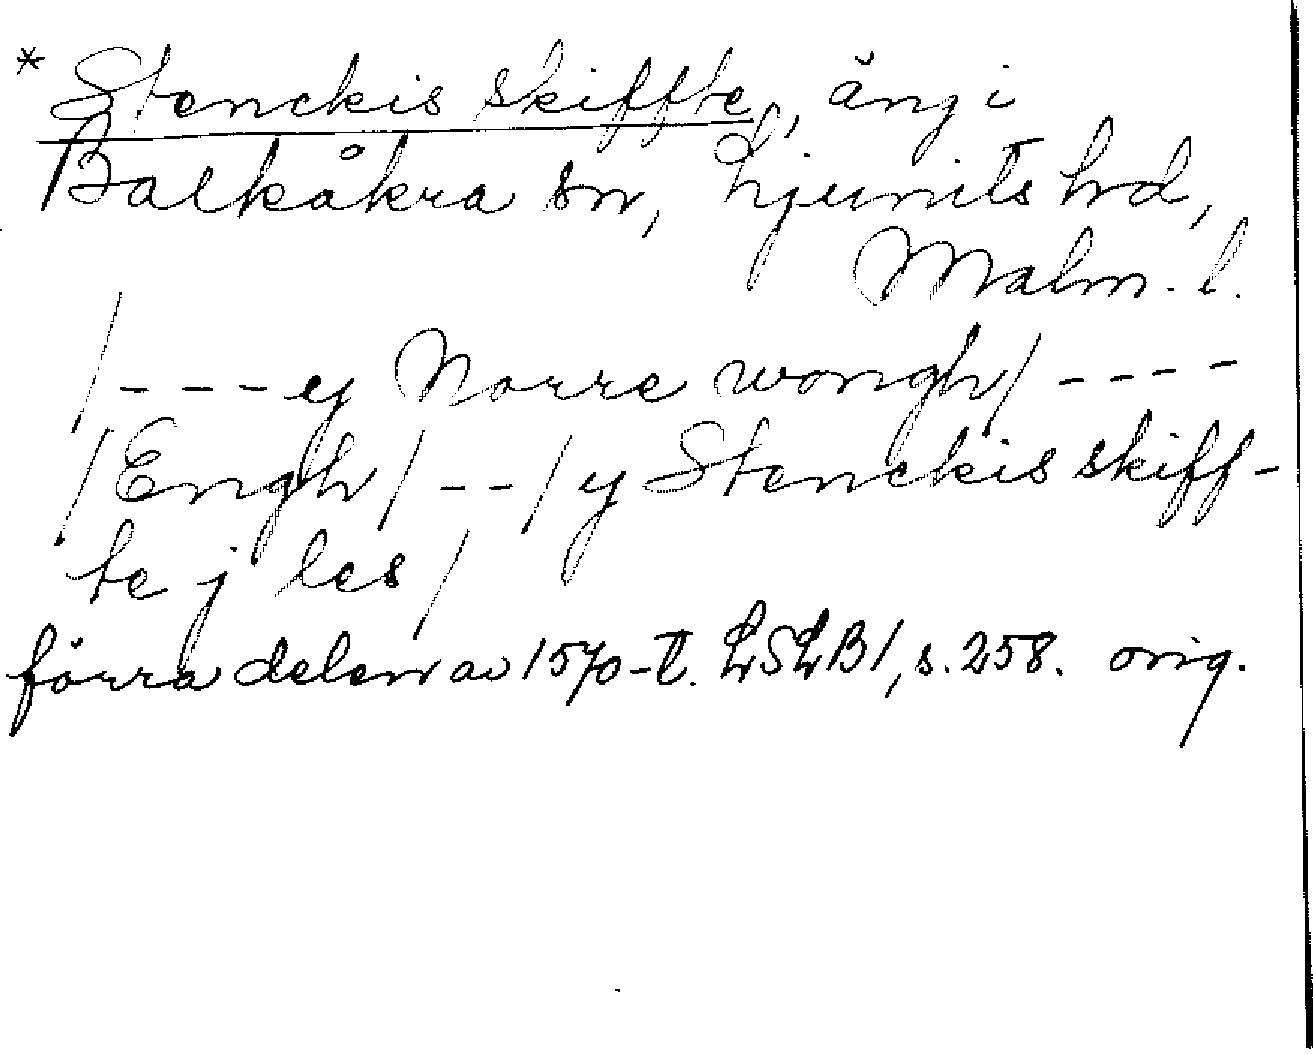 * Stenckis skiffte, äng i
Balkåkra sn, Ljunits hd,
Malm. l.
/- - - ey Norre wongh/ - - - -
/Engh/ - - / y Stenckis skiff-
te j les/
förra delen av 1570-t. LSLB1, s. 258. orig.